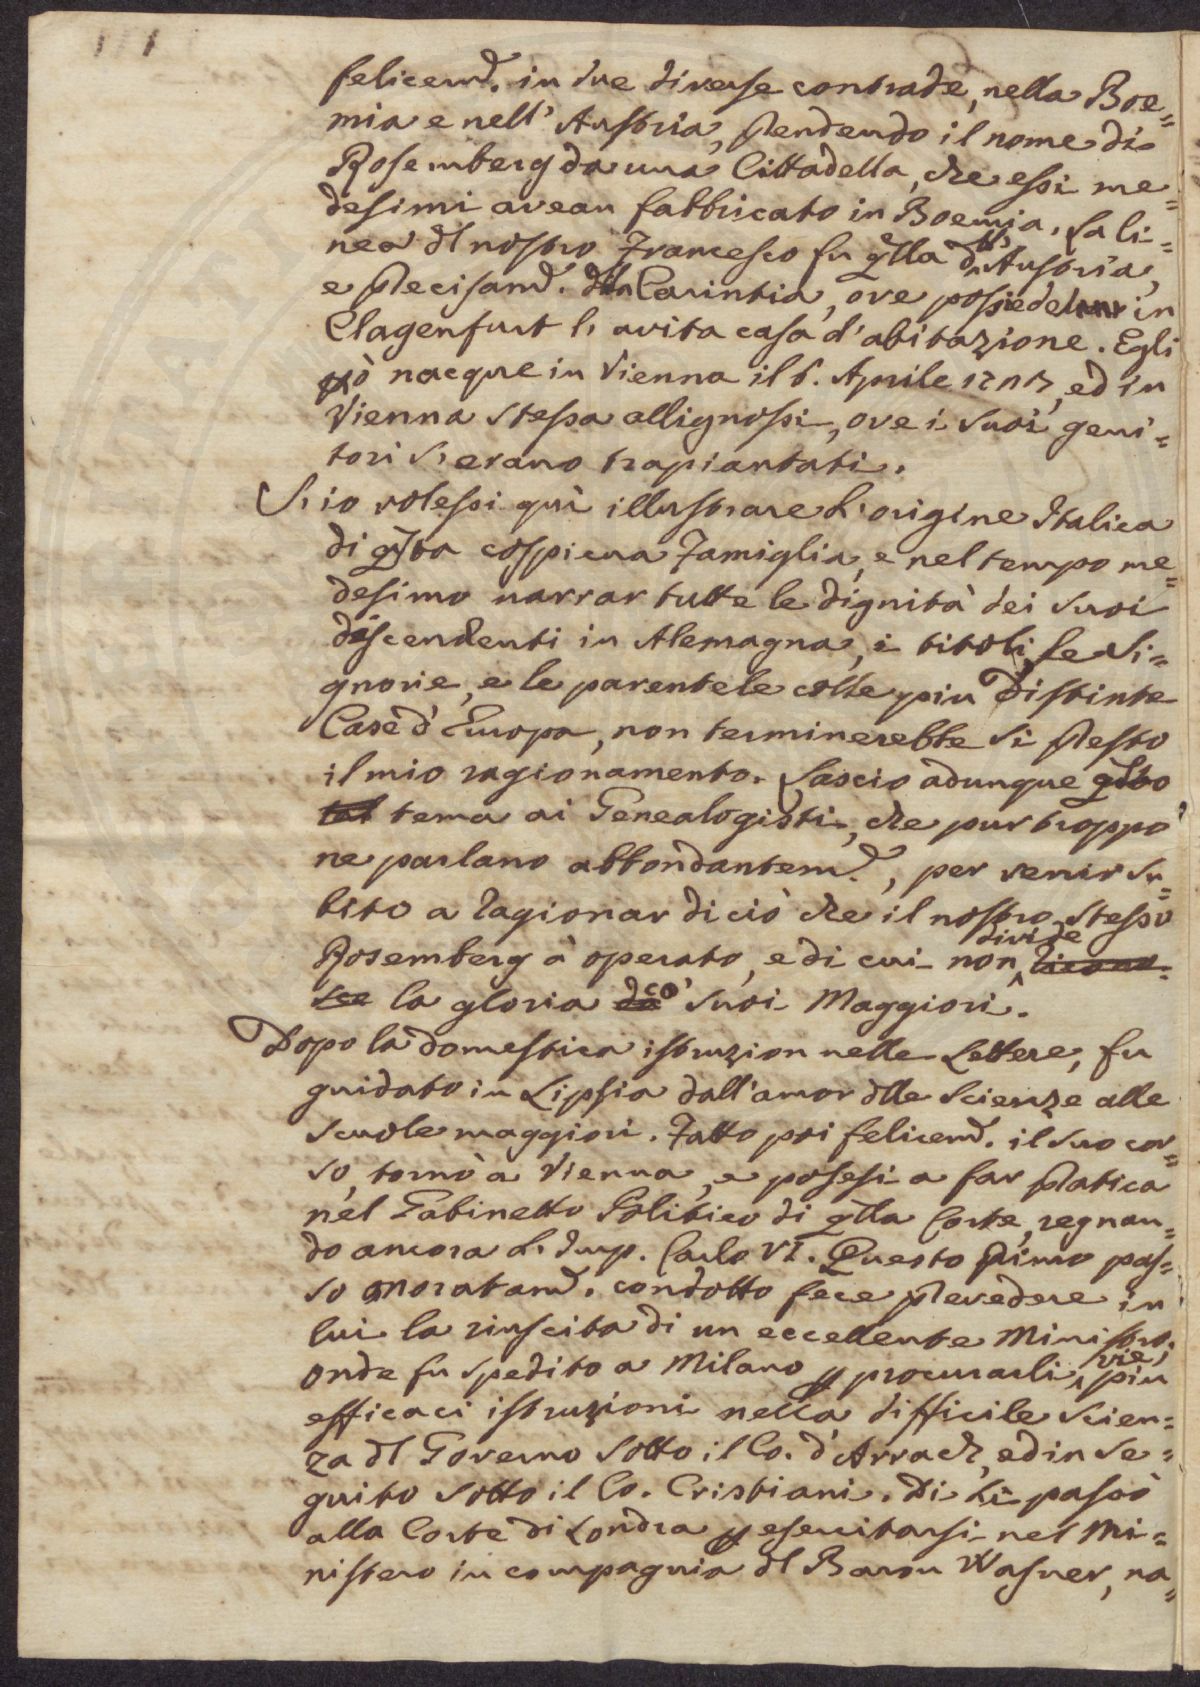 felicem.e in due diverse contrade, nella Boe=
mia e nell' Austria, prendendo il nome di
Rosemberg da una Cittadella, che essi me=
desimi avean fabbricato in Boemia. La li=
nea dl nostro Francesco fu qlla dll' Austria,
e precisam.e dlla Carintia, ove possiede in
Clagenfurt l' avita casa d' abitazione. Egli
pò nacque in Vienna il 6. Aprile ed in
Vienna stessa allignossi, ove i suoi geni=
tori s' erano trapiantati.
S' io volessi quì illustrare l' origine Italica
di qsta cospicua Famiglia, e nel tempo me=
desimo narrar tutte le dignità dei suoi
discendenti in Alemagna, i titoli, le Si=
gnorie, e le parentele colle piu distinte
Case d' Europa, non terminerebbe sì presto
il mio ragionamento. Lascio adunque qsto
tal tema ai Genealogisti, che pur troppo
ne parlano abbondantem.e, per venir su=
bito a ragionar di ciò che il nostro stesso
Rosemberg à operato, e di cui non divide
la gloria co' suoi Maggiori.
Dopo la domestica istruzion nelle Lettere, fu
guidato in Lipsia dall' amor dlle Scienze alle
scuole maggiori. Fatto poi felicem.e il suo cor=
so, tornò a Vienna, e posesi a far pratica
nel Gabinetto Politico di qlla Corte, regnan=
do ancora l' Imp. Carlo VI. Questo primo pas=
so onoratam.e condotto fece prevedere in
lui la riuscita di un eccellente Ministro;
onde fu spedito a Milano p procurarli vie piu
efficaci istruzioni nella difficile scien=
za dl Governo sotto il Co. d' Arrach, ed in se=
guito sotto il Co. Cristiani. Di lì passò
alla Corte di Londra p esercitarsi nel Mi=
nistero in compagnia dl Baron Wasner, na=